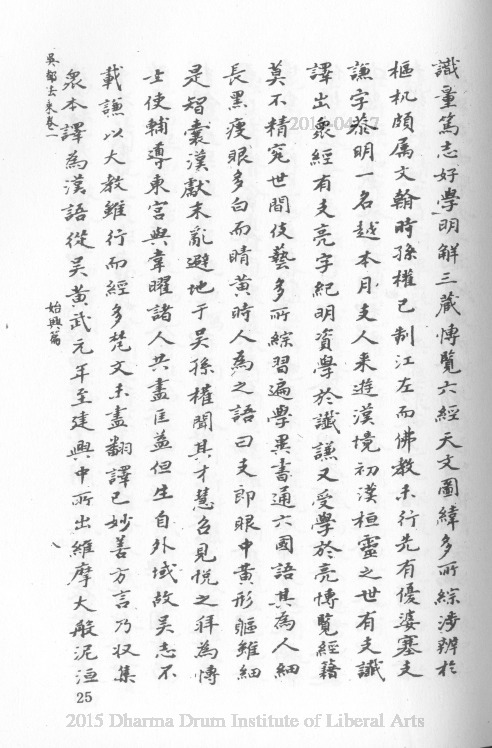 識量篤志好學明解三藏愽覽六經天文圖緯多所綜涉辨於
樞机頗属文翰時孫權已制江左而佛教未行先有優婆塞支
謙字恭明一名越本月支人来遊漢境初漢桓靈之世有支讖
譯出衆經有支亮字紀明資學於讖謙又受學於亮愽覽經籍
莫不精究世間伎藝多所綜習遍學異書通六國語其為人細
長黑瘦眼多白而睛黃時人為之語曰支郎眼中黃形軀雖細
是智囊漢獻末亂避地于吴孫權聞其才慧召見悅之拜為愽
士使輔導東宮與韋曜諸人共盡匡益但生自外域故吴志不
載謙以大教雖行而經多梵文未盡翻譯已妙善方言乃収集
衆本譯為漢語從吴黃武元年至建興中所出維摩大般泥洹
始興篇
吳都法乘卷一
八
25
2015 Dharma Drum Institute of Liberal Arts